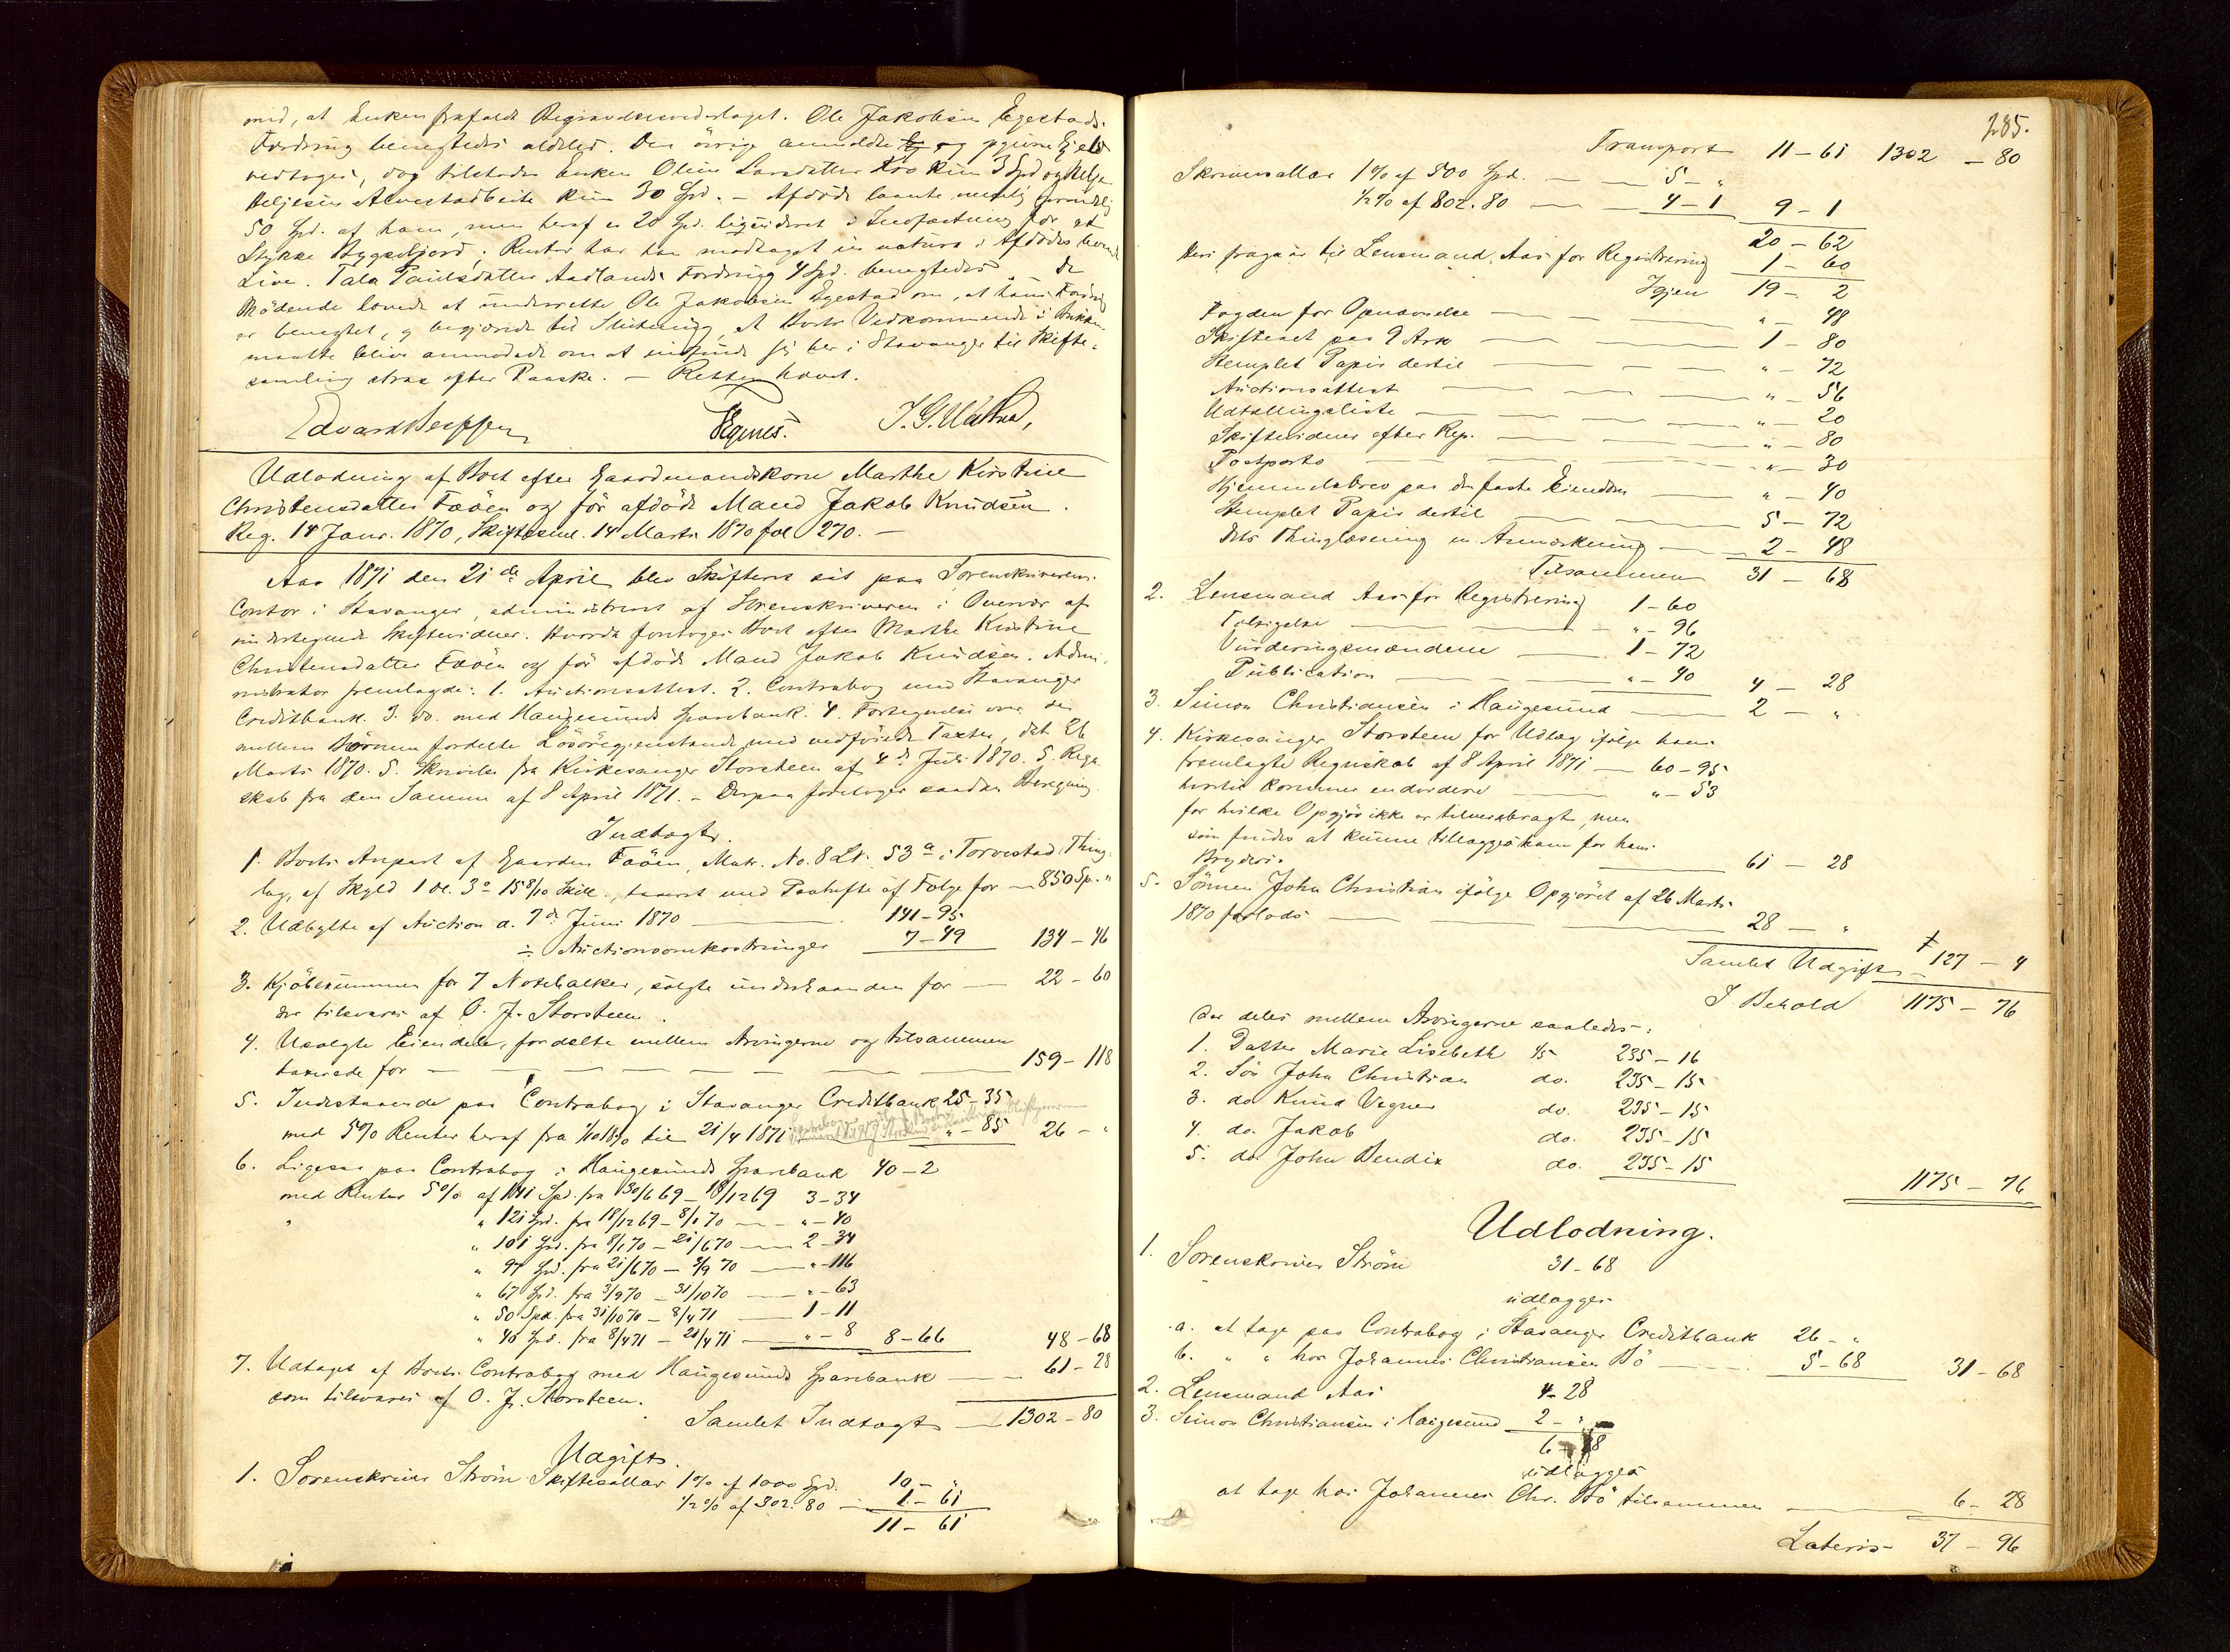 med, at Enken frafaldt Begravelsesvederlaget. Ole Jakobsen Egestads
Fordring benegtedes aldeles. Den øvrige anmeldte og Gjeld
vedtoges, dog tilstodes Enken Olene Larsdatter kun 3 Spd og Helje
Heljesen kun 30 Spd. – Afdøde laante nemlig
50 Spd. af ham, men heraf er 20 Spd. liqvideret i for et
Stykke Bygseljord; Renter har han modtaget in natura i Afdødes
Live. Tala Paulsdatter Aadlands Fordring 4 Spd. benegtedes. De
Mødende lovede at underrette Ole Jakobsen Egestad om, at hans Fordring
er benegtet, og begjærede til Slutning, at Boets Vedkommende i
maatte blive anmodede om at indfinde sig her i Stavanger til Skifte-
samling strax efter Paaske. – Retten hævet.
Hegnes.
Udlodning af Boet efter Gaardmandskone Marthe Kirstine
Christensdatter Faøen og før afdøde Mand Jakob Knudsen.
Reg. 14 Janr. 1870, Skiftesml. 14 Marts 1870 fol 270. –
Aar 1871 den 21de April blev Skifteret sat paa Sorenskriverens
Contor i Stavanger, administreret af Sorenskriveren i Overvær af
undertegnede Skiftevidner. Hvorda foretoges Boet efter Marthe Kirstine
Christensdatter Faøen og før afdøde Mand Jakob Knudsen. Admi-
nistrator fremlagde: 1. Auctionsattest. 2. Contrabog med Stavanger
Creditbank. 3. do. med Haugesunds Sparebank. 4. Fortegnelse over de
mellem Børnene fordelte Løsøregjenstande med vedføiede Taxter, dat. 26
Marts 1870. 5. Skrivelse fra Kirkesanger Storsteen af 4de Juli 1870. 5. Regn-
skab fra den Samme af 8 April 1871. – Derpaa foretoges saadan Beregning
Indtægt.
1. Boets Anpart af Gaarden Faøen, Matr. No. 8 Lt. 53a i Torvestad Thing-
lag, af Skyld 1 Dl. 3o 15 8/10 Skill., taxeret med Paahefte af Følge for – 850 Sp. "
2. Udbytte af Auction d. 7de Juni 1870 — 141 – 95
÷ Auctionsomkostninger 7 – 49 134 – 46
3. Kjøbesummen for 7 Notebalker, solgte underhaanden for — 22 – 60
der tilsvares af O. J. Storsteen.
4. Usolgte Eiendele, fordelte mellem Arvingerne og tilsammen
taxerede for — — — — — 159 – 118
5. Indestaaende paa Contrabog i Stavanger Creditbank 25 – 35
med 5% Renter heraf fra 1/10 1870 til 21/4 1871 " – 85 26 – "
6. Ligesaa paa Contrabog i Haugesunds Sparebank 40 – 2
med Renter 5% af 141 Spd. fra 30/6 69 – 18/12 69 3 – 34
" " 121 Spd. fra 18/12 69 – 8/1 70 — " – 40
" 101 Spd. fra 8/1 70 – 21/6 70 — 2 – 34
" 97 Spd. fra 21/6 70 – 3/9 70 — " – 116
" 67 Spd. fra 3/9 70 – 31/10 70 — " – 63
" 50 Spd. fra 31/10 70 – 8/4 71 — 1 – 11
" 46 Spd. fra 8/4 71 – 21/4 71 — " – 8 8 – 66 48 – 68
7. Udtaget af Boets Contrabog med Haugesunds Sparebank — 61 – 28
som tilsvares af O. J. Storsteen.
Samlet Indtægt — 1302 – 80
Udgift.
1. Sorenskriver Strøm Skiftesallær 1% af 1000 Spd. 10 – "
1/2% af 302. 80 — 1 – 61
11 – 61
285.
Transport 11 – 61 1302 – 80
Skriversallær 1% af 500 Spd. — 5 – "
1/2% af 802. 80 — 4 – 1 9 – 1
20 – 62
Heri fragaar til Lensmand Aas for Registrering 1 – 60
Igjen 19 – 2
Fogden for Opnævnelse — " – 48
Skifteact paa 9 Ark — 1 – 80
Stemplet Papir dertil — " – 72
Auctionsattest — " – 56
Udtællingsliste — " – 20
Skiftevidner efter Reg. — " – 80
Postporto — " – 30
Hjemmelsbrev paa den faste Eiendom — " – 40
Stemplet Papir dertil — 5 – 72
Dets Thinglæsning m. Anmærkning — 2 – 48
Tilsammen 31 – 68
2. Lensmand Aas for Registrering 1 – 60
Tilsigelse — " – 96
Vurderingsmændene — 1 – 72
Publication — " – 40 4 – 28
3. Simon Christiansen i Haugesund — 2 – "
4. Kirkesanger Storsteen for Udlæg ifølge hans
fremlagte Regnskab af 8 April 1871 — 60 – 95
hvortil kommer endvidere — " – 53
for hvilke Opgjør ikke er tilveiebragt, men
som findes at kunne tillægges ham for hans
Bryderi. — 61 – 28
5. Sønnen John Christian ifølge Opgjøret af 26 Marts
1870 forlods — 28 – "
Samlet Udgift — 127 – 4
I Behold 1175 – 76
der deles mellem Arvingerne saaledes:
1. Datter Marie Lisebeth 1/5 235 – 16
2. Søn John Christian do. 235 – 15
3. do Knud Vegner do. 235 – 15
4. do. Jakob do. 235 – 15
5. do John Bendix do. 235 – 15
1175 – 76
Udlodning.
1. Sorenskriver Strøm 31 – 68
udlægges
a. at tage paa Contrabog i Stavanger Creditbank 26 – "
b. " " hos Johannes Christiansen Bø — 5 – 68 31 – 68
2. Lensmand Aas 4 – 28
3. Simon Christiansen i Haugesund 2 – "
6 – 28
udlægges
at tage hos Johannes Chr. Bø tilsammen — 6 – 28
Lateris 37 – 96